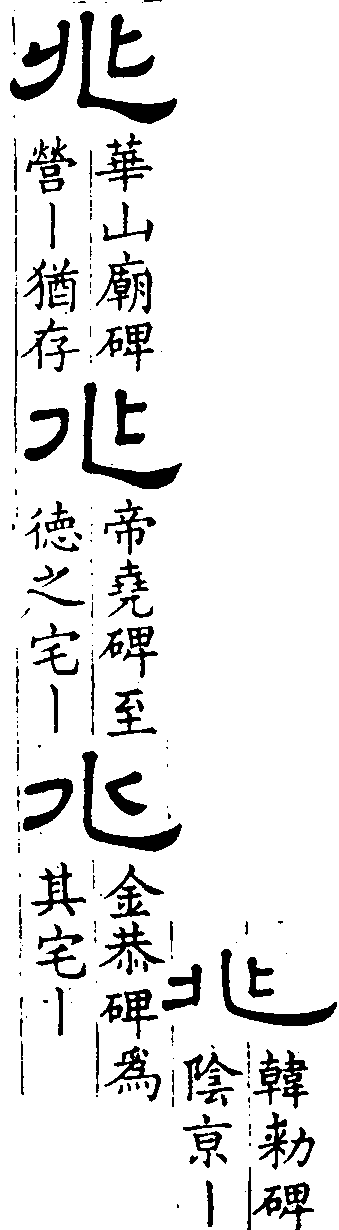 兆
韓勑碑
陰亰丨
兆
華山廟碑
營丨猶存
兆
帝堯碑至
德之宅丨
兆
金恭碑爲
其宅丨